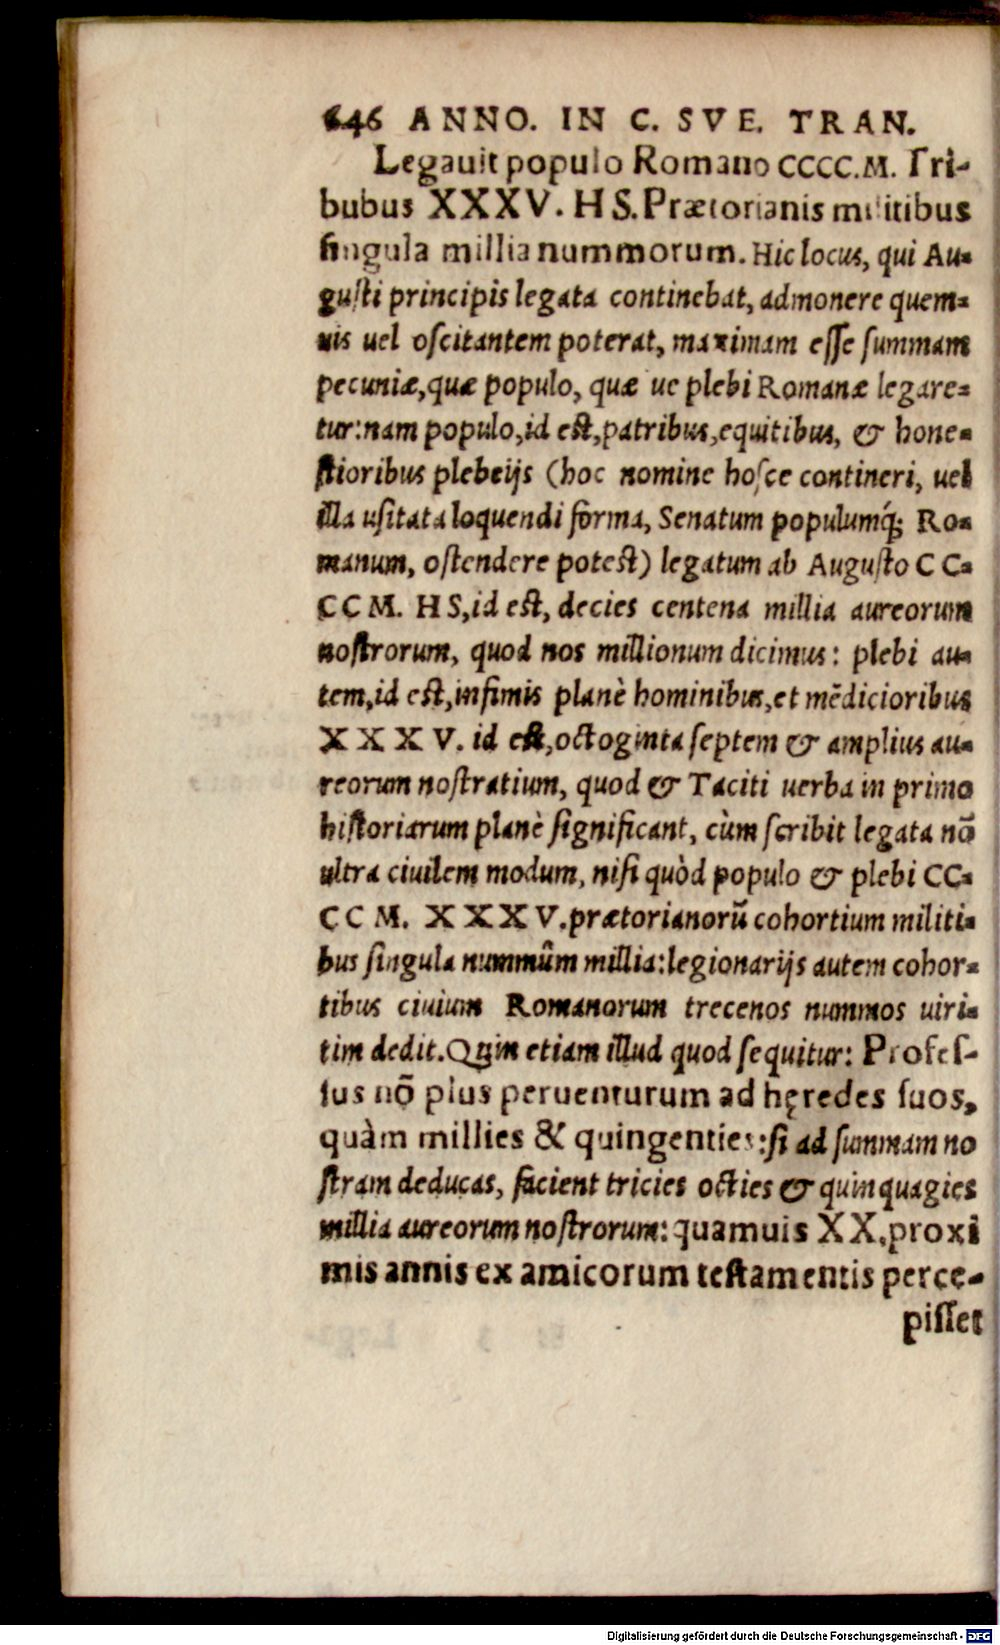 646 ANNO. IN C. SVE. TRAN.
Legauit populo Romano CCCC.M. Tri-
bubus XXXV. HS. Prætorianis militibus
singula millia nummorum. Hic locus, qui Au-
gusti principis legata continebat, admonere quem-
uis uel oscitantem poterat, maximam esse summam
pecuniæ, quæ populo, quæ ue plebi Romanæ legare-
tur: nam populo, id est, patribus, equitibus, & hone-
stioribus plebeijs (hoc nomine hosce contineri, uel
illa usitata loquendi forma, Senatum populumq́; Ro-
manum, ostendere potest) legatum ab Augusto CC-
CCM. HS, id est, decies centena millia aureorum
nostrorum, quod nos millionum dicimus: plebi au-
tem, id est, infimis planè hominibus, et mēdicioribus
XXXV. id est, octoginta septem & amplius au-
reorum nostratium, quod & Taciti uerba in primo
historiarum planè significant, cùm scribit legata nō
ultra ciuilem modum, nisi quòd populo & plebi CC-
CCM. XXXV. prætorianorū cohortium militi-
bus singula nummûm millia: legionarijs autem cohor-
tibus ciuium Romanorum trecenos nummos uiri-
tim dedit. Quin etiam illud quod sequitur: Profes-
sus nō plus peruenturum ad hęredes suos,
quàm millies & quingenties: si ad summam no
stram deducas, facient tricies octies & quinquagies
millia aureorum nostrorum: quamuis XX. proxi
mis annis ex amicorum testamentis perce-
pisset
Digitalisierung gefördert durch die Deutsche Forschungsgemeinschaft - DFG